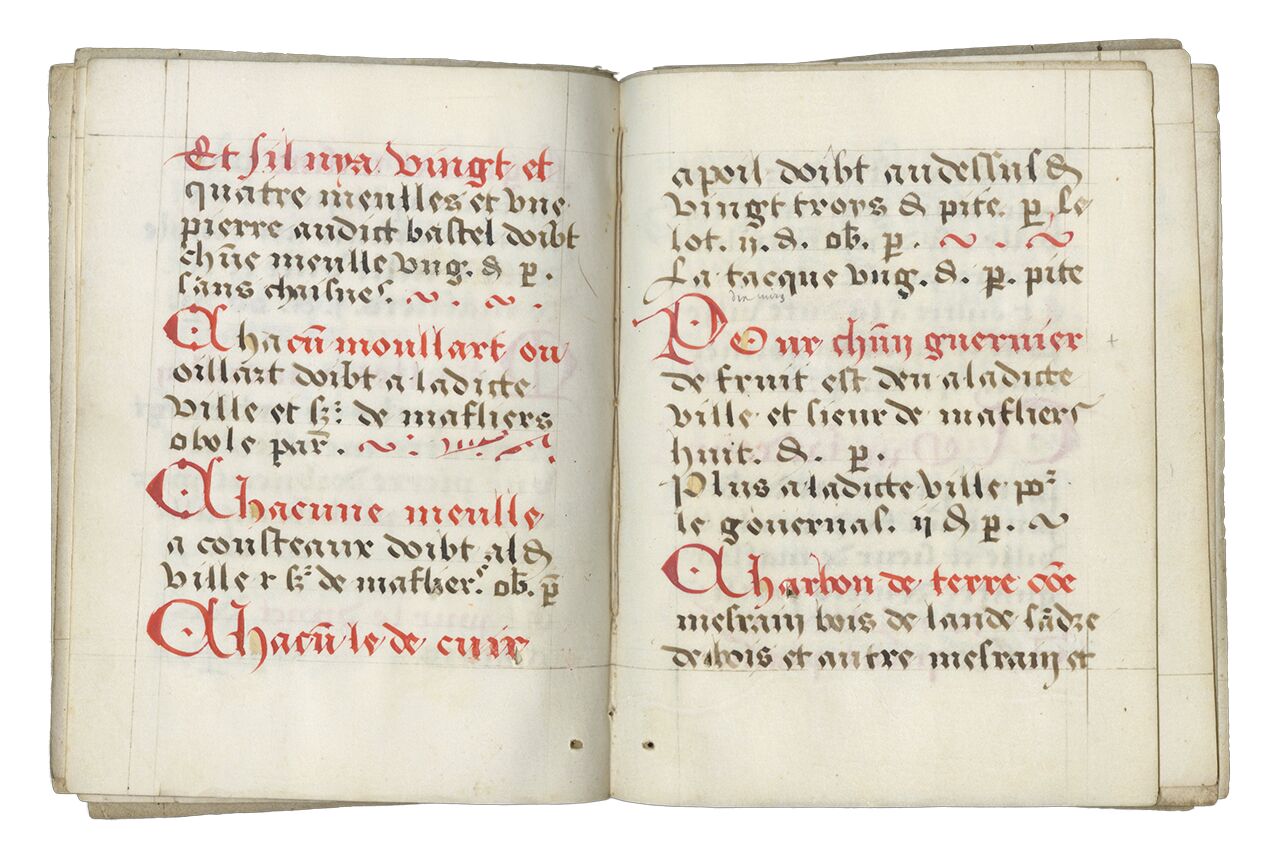 Et sil nya vingt et
quatre meulles et vne
pierre audict bastel doibt
chũe meulle vng. d p.
sans chaisnes.
Chacũ moullart ou
oillart doibt a ladicte
ville et sr de mafliers
obole par.
Chacune meulle
a cousteaux doibt a lad
ville r sr de maflier. ob. p
Chacũ le de cuir
a poil doibt au dessus d
vingt troys d pite. p. le
lot. ij. d. ob. p.
La tacque vng. d. p. pite
Pour chũn guernier
de fruit est deu a ladicte
ville et sieur de mafliers
huit. d. p.
Plus a ladicte ville por
le gouernal. ij d p.
Charbon de terre cõe
mesrain bois de lande sãdre
de bois et autre mesrain et